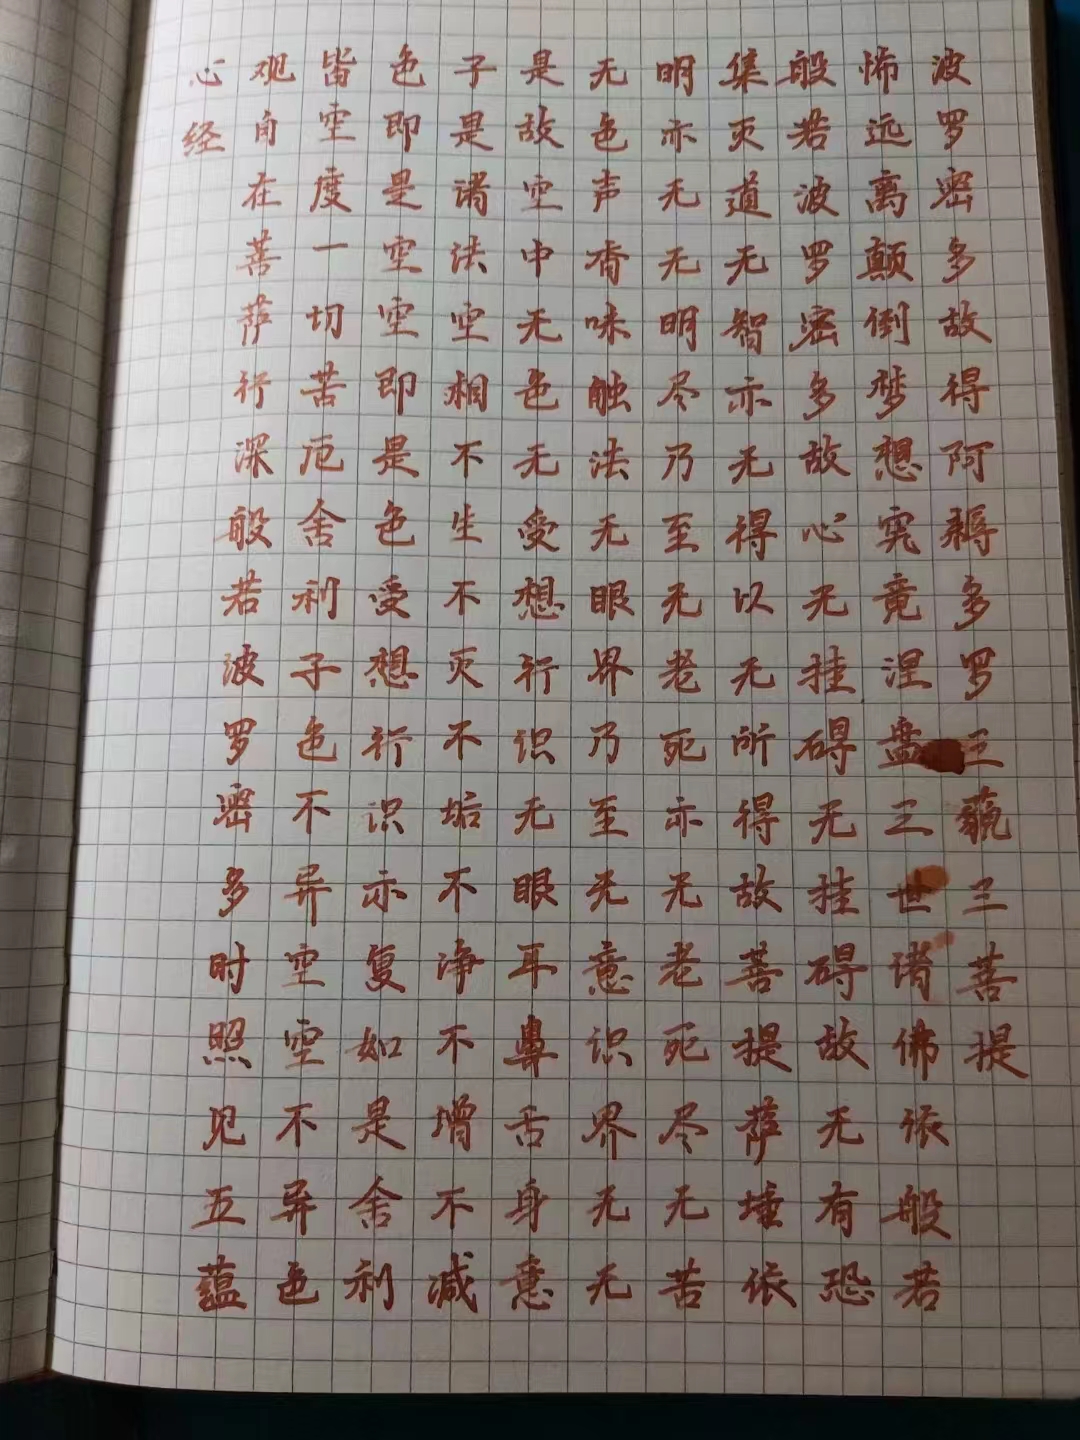 心经
观自在菩萨行深般若波罗密多时照见五蕴
皆空度一切苦厄舍利子色不异空空不异色
色即是空空即是色受想行识亦复如是舍利
子是诸法空相不生不灭不垢不净不增不减
是故空中无色无受想行识无眼耳鼻舌身意
无色声香味触法无眼界乃至无意识界无无
明亦无无明尽乃至无老死亦无老死尽无苦
集灭道无智亦无得以无所得故菩提萨埵依
般若波罗密多故心无挂碍无挂碍故无有恐
怖远离颠倒梦想究竟涅盘三世诸佛依般若
波罗密多故得阿耨多罗三藐三菩提